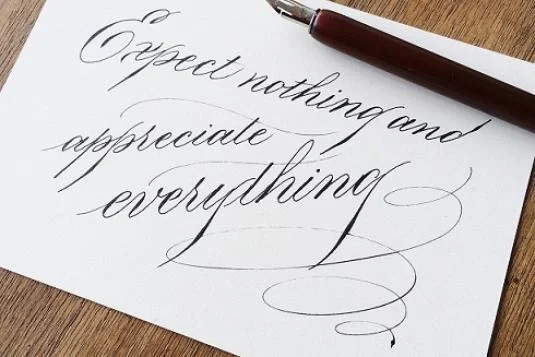 Expect nothing and
appreciate
everything